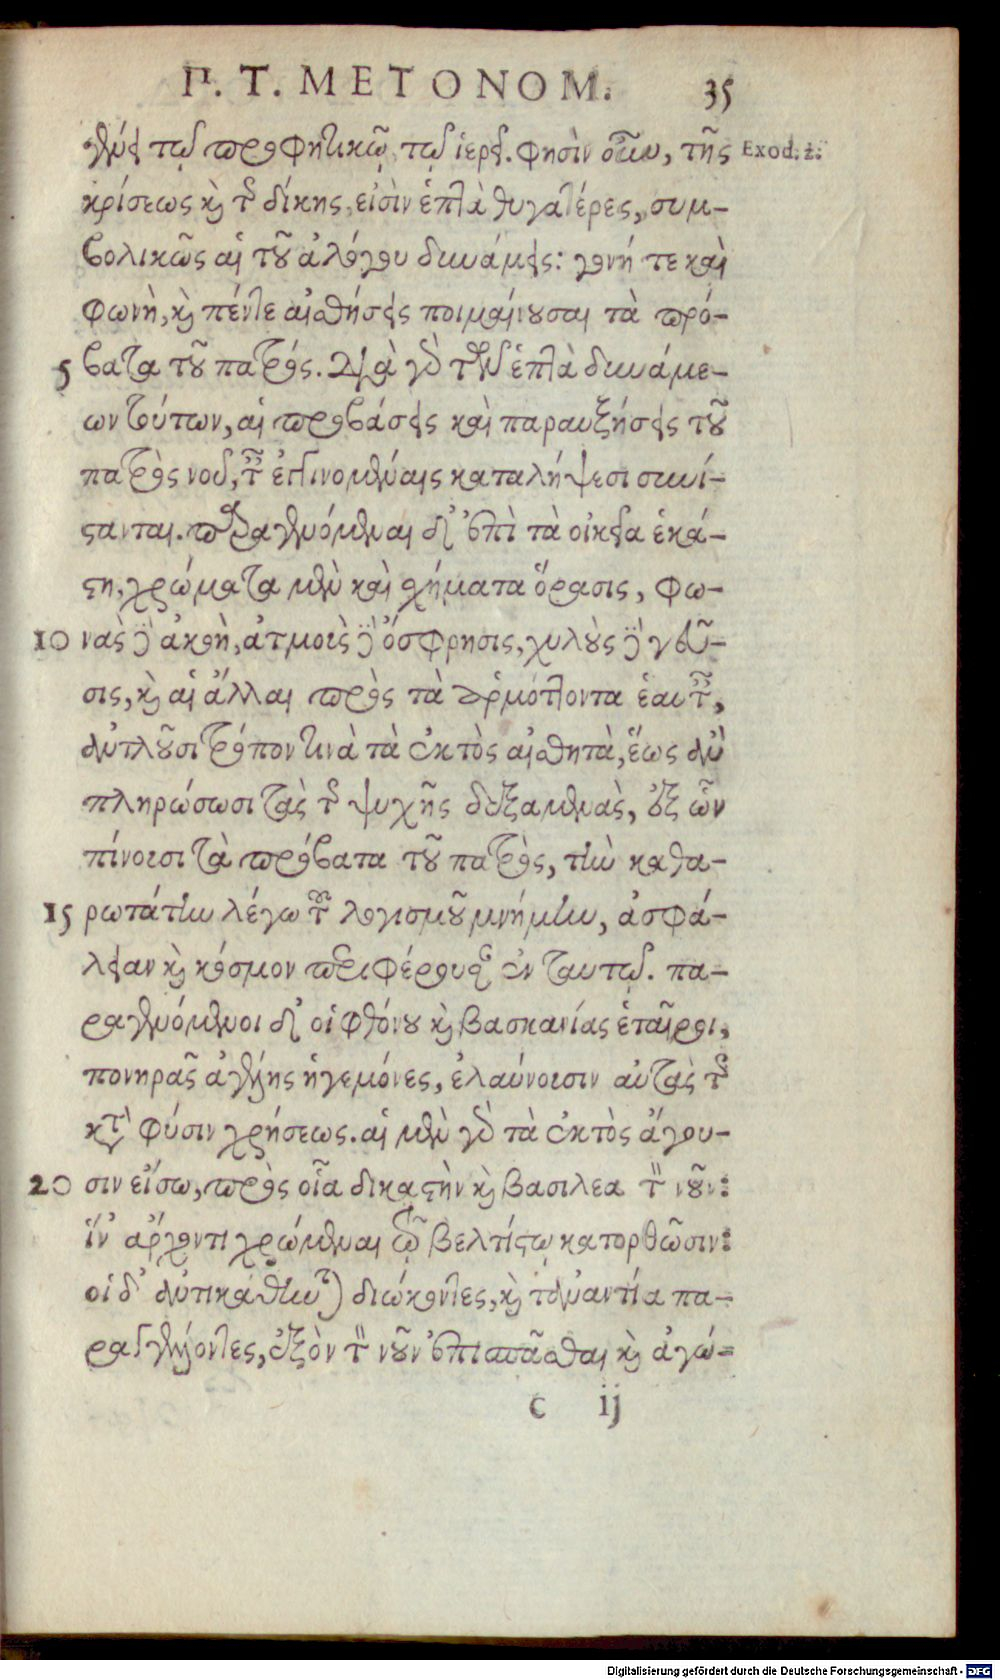 Π. Τ. ΜΕΤΟΝΟΜ. 35
γένει τῷ προφητικῷ, τῷ ἱερεῖ. φησὶν οὖν, τῆς Exod. 2.
κρίσεως καὶ τῆς δίκης, εἰσὶν ἑπτὰ θυγατέρες, συμ-
βολικῶς αἱ τοῦ ἀλόγου δυνάμεις: γονή τε καὶ
φωνὴ, καὶ πέντε αἰσθήσεις ποιμαίνουσαι τὰ πρό-
5 βατα τοῦ πατρός. διὰ γὰρ τῶν ἑπτὰ δυνάμε-
ων τούτων, αἱ προβάσεις καὶ παραυξήσεις τοῦ
πατρὸς νοῦ, ταῖς ἐπιγινομέναις καταλήψεσι συνί-
στανται. παραγενόμεναι δ' ἐπὶ τὰ οἰκεῖα ἑκά-
στη, χρώματα μὲν καὶ σχήματα ὅρασις, φω-
10 νὰς δὲ ἀκοὴ, ἀτμοὺς δὲ ὄσφρησις, χυλοὺς δὲ γεῦ-
σις, καὶ αἱ ἄλλαι πρὸς τὰ ἁρμόττοντα ἑαυταῖς,
ἀντλοῦσι τρόπον τινὰ τὰ ἐκτὸς αἰσθητὰ, ἕως ἂν
πληρώσωσι τὰς τῆς ψυχῆς δεξαμενὰς, ἐξ ὧν
πίνουσι τὰ πρόβατα τοῦ πατρὸς, τὴν καθα-
15 ρωτάτην λέγω τοῦ λογισμοῦ μνήμην, ἀσφά-
λειαν καὶ κόσμον ἐν ταυτῷ. πα-
ραγενόμενοι δ' οἱ φθόνου καὶ βασκανίας ἑταῖροι,
πονηρᾶς ἀγέλης ἡγεμόνες, ἐλαύνουσιν αὐτὰς τῆς
κατὰ φύσιν χρήσεως. αἱ μὲν γὰρ τὰ ἐκτὸς ἄγου-
20 σιν εἴσω, πρὸς οἷα δικαστὴν καὶ βασιλέα τὸν νοῦν:
ἵν' ἄρχοντι χρώμεναι τῷ βελτίστῳ κατορθῶσιν:
οἱ δ' ἀντικάθηνται διώκοντες, καὶ τἀναντία πα-
ραγγέλλοντες, ἐξὸν τὸν νοῦν ἐπισπᾶσθαι καὶ ἀγώ-
c ij
Digitalisierung gefördert durch die Deutsche Forschungsgemeinschaft - DFG